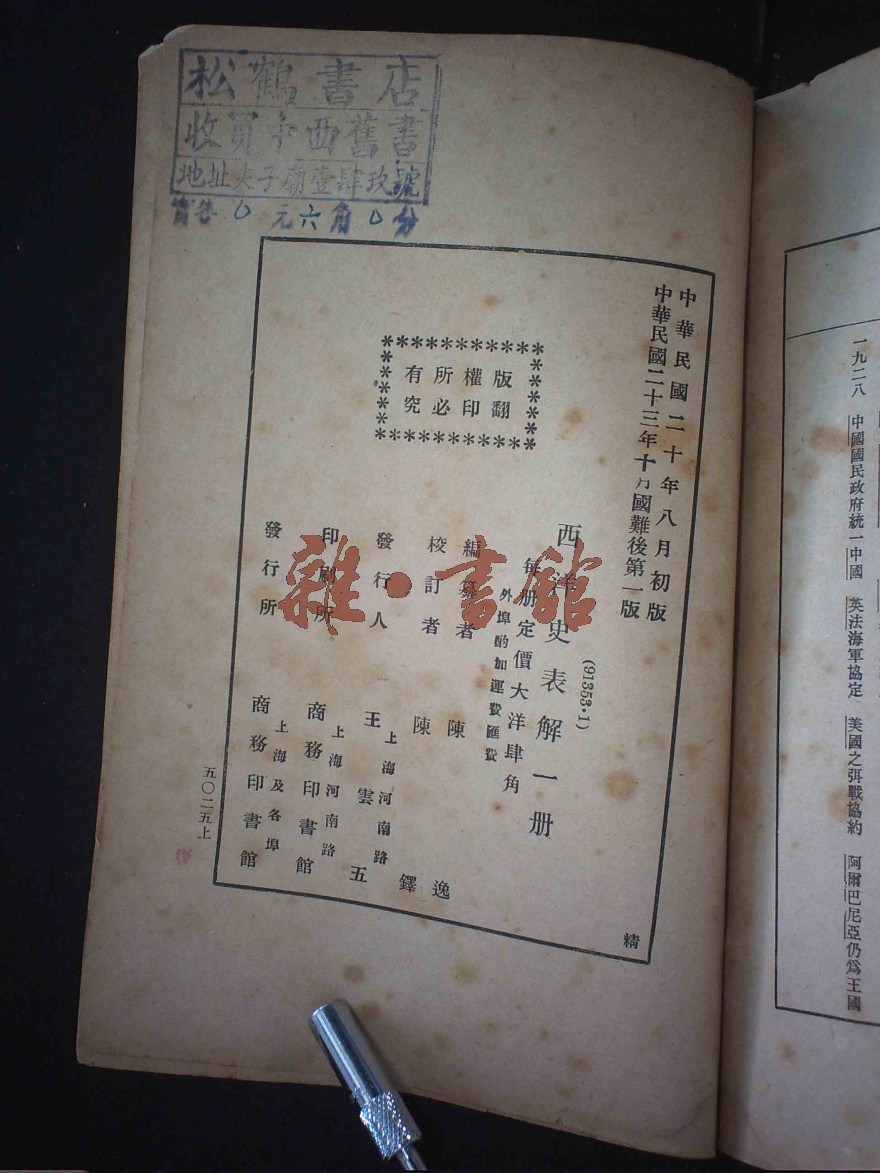 松鶴書店
收買中西舊書
地址夫子廟壹肆玖號
0元六角0分
中華民國二十年八月初版
中華民國二十三年十月國難後第一版
(91353·1)
西洋史表解一册
每册定價大洋肆角
外埠酌加運費匯費
版權所有
翻印必究
編纂者 陳逸
校訂者 陳鐸
發行人 王雲五
上海河南路
印刷所 商務印書館
上海及各埠
發行所 商務印書館
精
五〇二五上
雜·書館
一九二八 中國國民政府統一中國 英法海軍協定 美國之弭戰協約 阿爾巴尼亞仍爲王國